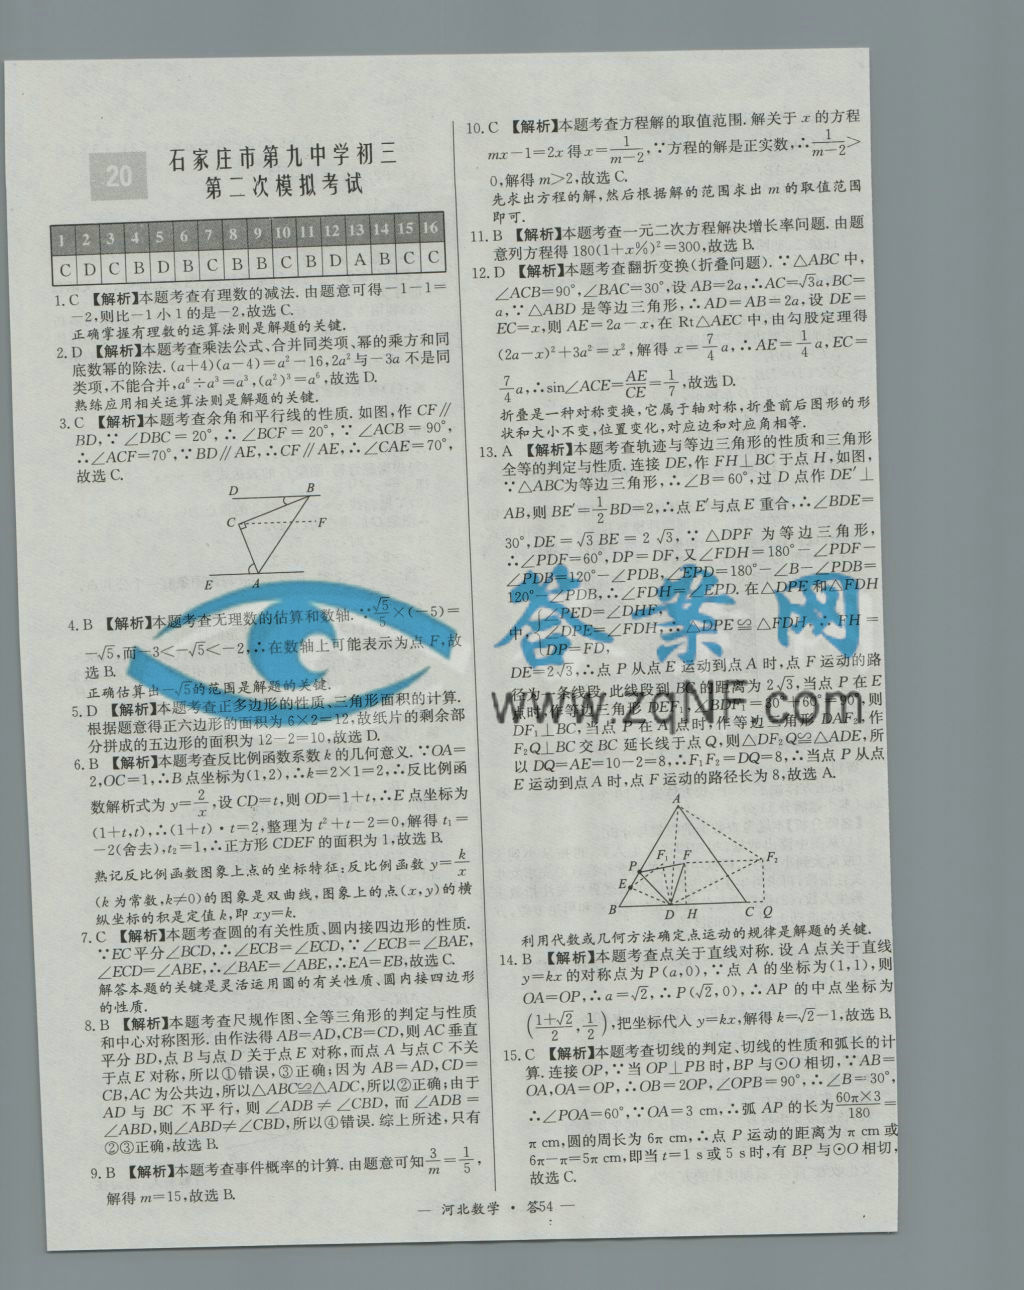 20
石家庄市第九中学初三
第二次模拟考试
1 2 3 4 5 6 7 8 9 10 11 12 13 14 15 16
C D C B D B C B B C B D A B C C
1.C 【解析】本题考查有理数的减法.由题意可得-1-1=
-2,则比-1小1的是-2,故选C.
正确掌握有理数的运算法则是解题的关键.
2.D 【解析】本题考查乘法公式、合并同类项、幂的乘方和同
底数幂的除法.(a+4)(a-4)=a²-16,2a²与-3a不是同
类项,不能合并,a⁶÷a³=a³,(a²)³=a⁶,故选D.
熟练应用相关运算法则是解题的关键.
3.C 【解析】本题考查余角和平行线的性质.如图,作CF∥
BD,∵∠DBC=20°,∴∠BCF=20°,∵∠ACB=90°,
∴∠ACF=70°,∵BD∥AE,∴CF∥AE,∴∠CAE=70°,
故选C.
D B
C F
E A
4.B 【解析】本题考查无理数的估算和数轴.∵√5/5×(-5)=
-√5,而-3<-√5<-2,∴在数轴上可能表示为点F,故
选B.
正确估算出-√5的范围是解题的关键.
5.D 【解析】本题考查正多边形的性质、三角形面积的计算.
根据题意得正六边形的面积为6×2=12,故纸片的剩余部
分拼成的五边形的面积为12-2=10,故选D.
6.B 【解析】本题考查反比例函数系数k的几何意义.∵OA=
2,OC=1,∴B点坐标为(1,2),∴k=2×1=2,∴反比例函
数解析式为y=2/x,设CD=t,则OD=1+t,∴E点坐标为
(1+t,t),∴(1+t)·t=2,整理为t²+t-2=0,解得t₁=
-2(舍去),t₂=1,∴正方形CDEF的面积为1,故选B.
熟记反比例函数图象上点的坐标特征:反比例函数y=k/x
(k为常数,k≠0)的图象是双曲线,图象上的点(x,y)的横
纵坐标的积是定值k,即xy=k.
7.C 【解析】本题考查圆的有关性质、圆内接四边形的性质.
∵EC平分∠BCD,∴∠ECB=∠ECD,∵∠ECB=∠BAE,
∠ECD=∠ABE,∴∠BAE=∠ABE,∴EA=EB,故选C.
解答本题的关键是灵活运用圆的有关性质、圆内接四边形
的性质.
8.B 【解析】本题考查尺规作图、全等三角形的判定与性质
和中心对称图形.由作法得AB=AD,CB=CD,则AC垂直
平分BD,点B与点D关于点E对称,而点A与点C不关
于点E对称,所以①错误,③正确;因为AB=AD,CD=
CB,AC为公共边,所以△ABC≌△ADC,所以②正确;由于
AD与BC不平行,则∠ADB≠∠CBD,而∠ADB=
∠ABD,则∠ABD≠∠CBD,所以④错误.综上所述,只有
②③正确,故选B.
9.B 【解析】本题考查事件概率的计算.由题意可知3/m=1/5,
解得m=15,故选B.
10.C 【解析】本题考查方程解的取值范围.解关于x的方程
mx-1=2x得x=1/(m-2),∵方程的解是正实数,∴1/(m-2)>
0,解得m>2,故选C.
先求出方程的解,然后根据解的范围求出m的取值范围
即可.
11.B 【解析】本题考查一元二次方程解决增长率问题.由题
意列方程得180(1+x%)²=300,故选B.
12.D 【解析】本题考查翻折变换(折叠问题).∵△ABC中,
∠ACB=90°,∠BAC=30°,设AB=2a,∴AC=√3a,BC=
a,∵△ABD是等边三角形,∴AD=AB=2a,设DE=
EC=x,则AE=2a-x,在Rt△AEC中,由勾股定理得
(2a-x)²+3a²=x²,解得x=7/4a,∴AE=1/4a,EC=
7/4a,∴sin∠ACE=AE/CE=1/7,故选D.
折叠是一种对称变换,它属于轴对称,折叠前后图形的形
状和大小不变,位置变化,对应边和对应角相等.
13.A 【解析】本题考查轨迹与等边三角形的性质和三角形
全等的判定与性质.连接DE,作FH⊥BC于点H,如图,
∵△ABC为等边三角形,∴∠B=60°,过D点作DE′⊥
AB,则BE′=1/2BD=2,∴点E′与点E重合,∴∠BDE=
30°,DE=√3BE=2√3,∵△DPF为等边三角形,
∴∠PDF=60°,DP=DF,又∠FDH=180°-∠PDF-
∠PDB=120°-∠PDB,∠EPD=180°-∠B-∠PDB=
120°-∠PDB,∴∠FDH=∠EPD.在△DPE和△FDH
中,{∠PED=∠DHF,∠DPE=∠FDH,DP=FD,∴△DPE≌△FDH,∴FH=
DE=2√3,∴点P从点E运动到点A时,点F运动的路
径为一条线段,此线段到BC的距离为2√3,当点P在E
点时,作等边三角形DEF₁,∠BDF₁=30°+60°=90°,则
DF₁⊥BC,当点P在A点时,作等边三角形DAF₂,作
F₂Q⊥BC交BC延长线于点Q,则△DF₂Q≌△ADE,所
以DQ=AE=10-2=8,∴F₁F₂=DQ=8,∴当点P从点
E运动到点A时,点F运动的路径长为8,故选A.
A
F₁ F F₂
P
E
B D H C Q
利用代数或几何方法确定点运动的规律是解题的关键.
14.B 【解析】本题考查点关于直线对称.设A点关于直线
y=kx的对称点为P(a,0),∵点A的坐标为(1,1),则
OA=OP,∴a=√2,∴P(√2,0),∴AP的中点坐标为
((1+√2)/2,1/2),把坐标代入y=kx,解得k=√2-1,故选B.
15.C 【解析】本题考查切线的判定、切线的性质和弧长的计
算.连接OP,∵当OP⊥PB时,BP与⊙O相切,∵AB=
OA,OA=OP,∴OB=2OP,∠OPB=90°,∴∠B=30°,
∴∠POA=60°,∵OA=3 cm,∴弧AP的长为60π×3/180=
π cm,圆的周长为6π cm,∴点P运动的距离为π cm或
6π-π=5π cm,即当t=1 s或5 s时,有BP与⊙O相切,
故选C.
— 河北数学·答54 —
答案网
www.zqNF.com